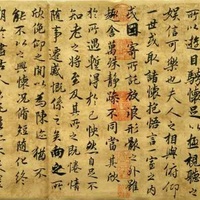 所以遊目騁懷足以極視聽之
娛信可樂也夫人之相與俯仰
一世或取諸懷抱悟言一室之內
或因寄所託放浪形骸之外雖
趣舍萬殊靜躁不同當其欣
於所遇蹔得於己怏然自足不
知老之將至及其所之既惓情
隨事遷感慨係之矣向之所
欣俛仰之間以為陳迹猶不
能不以之興懷況脩短隨化終